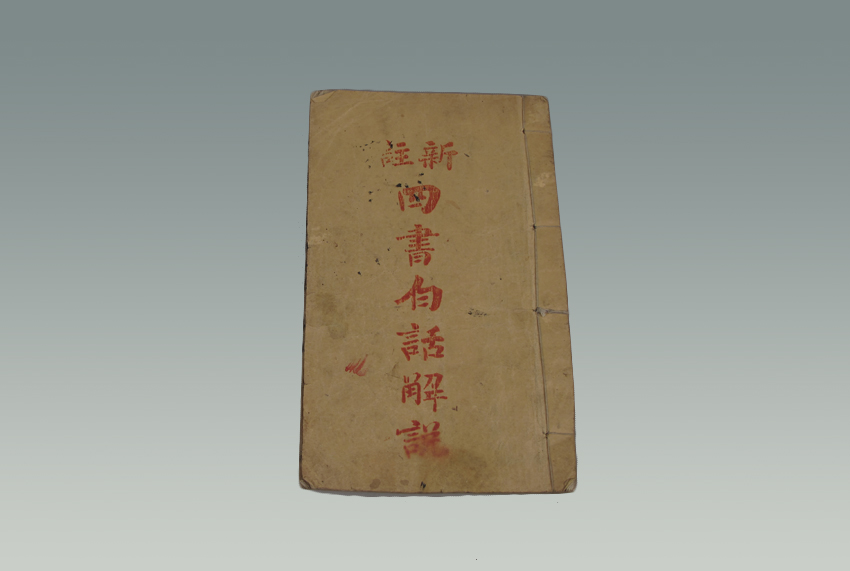 新註
四書白話解説